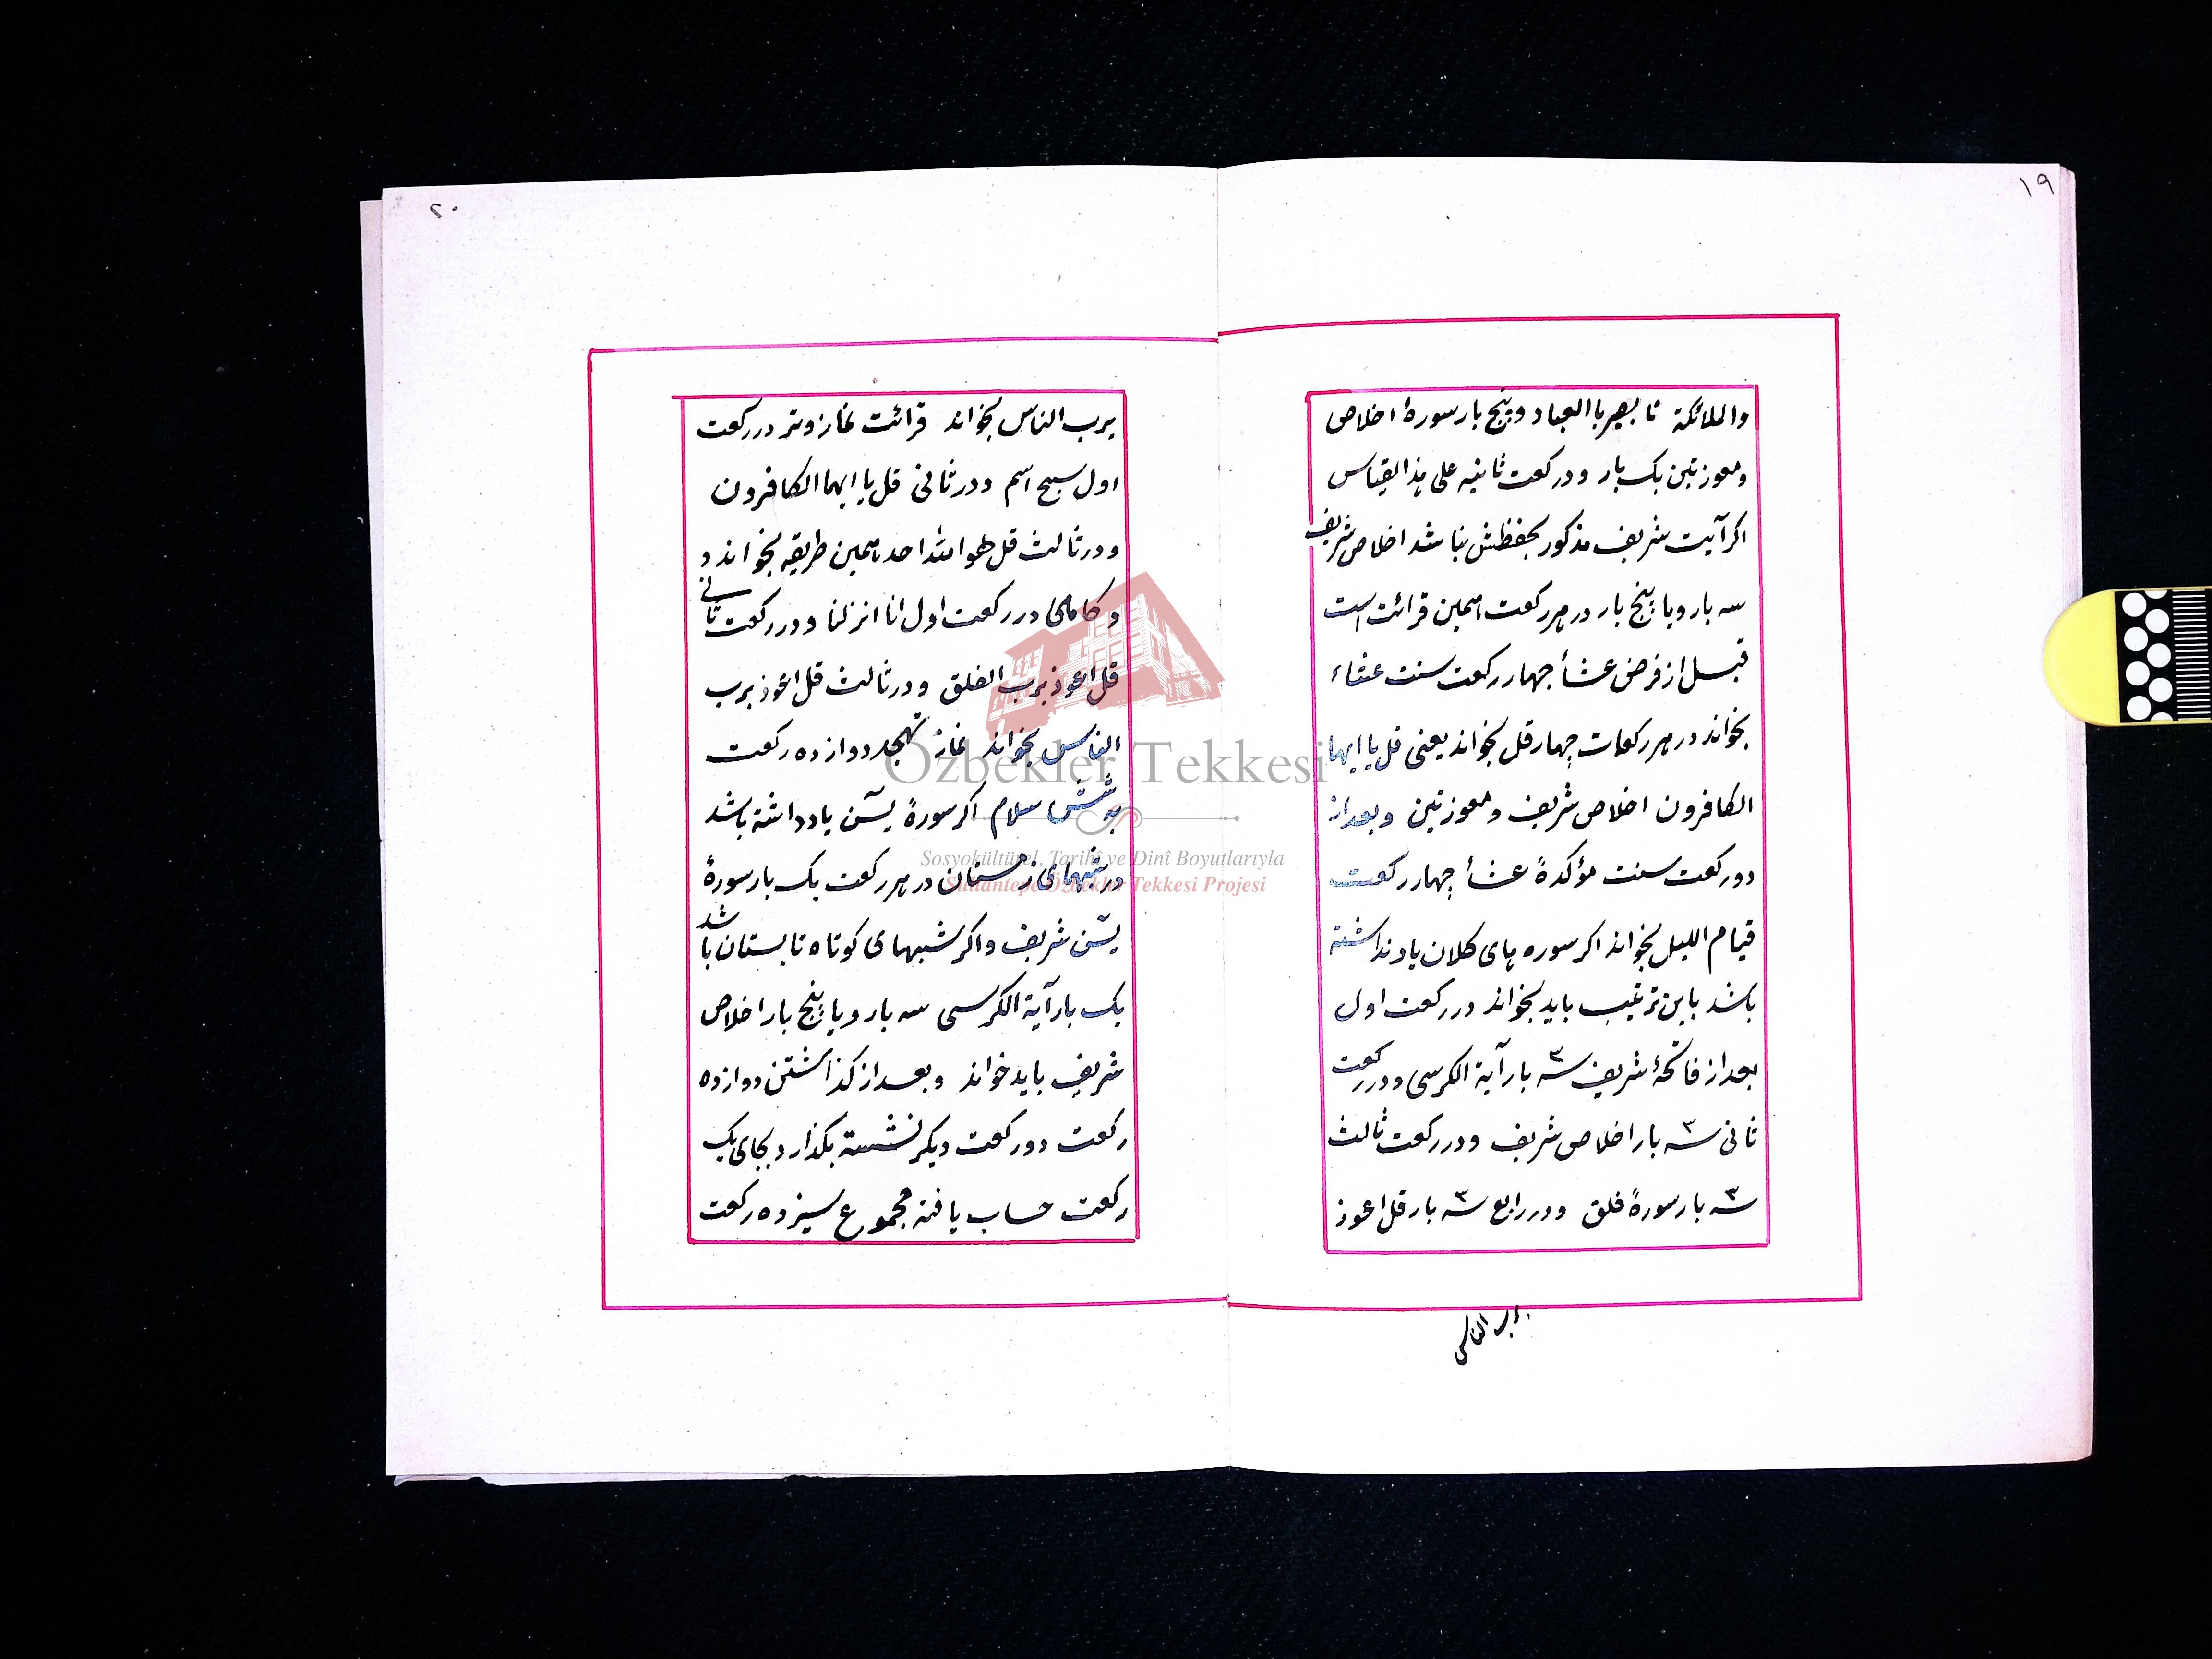 ١٩
والملائكة تا بصير باالعباد و پنج بار سورهٔ اخلاص
و معوزتين يک بار و در ركعت ثانيه على هذا القياس
اكر آيت شريف مذكور بحفظش نباشد اخلاص شريف
سه بار ويا پنج بار در هر ركعت همين قرائت است
قبل از فرض عشأ چهار ركعت سنت عشاء
بخواند در هر ركعات چهار قل بخواند يعنى قل يا ايها
الكافرون اخلاص شريف و معوزتين و بعد از
دو ركعت سنت مؤكدهٔ عشأ چهار ركعت
قيام الليل بخواند اكر سوره هاى كلان ياد نداشته
باشد باين ترتيب بايد بخواند در ركعت اول
بعد از فاتحهٔ شريف سه ٣ بار آية الكرسى و در ركعت
ثانى سه ٣ بار اخلاص شريف و در ركعت ثالث
سه ٣ بار سورهٔ فلق و در رابع سه ٣ بار قل اعوذ
برب الناس
٢٠
برب الناس بخواند قرائت نماز وتر در ركعت
اول سبح اسم و در ثانى قل يا ايها الكافرون
و در ثالث قل هو الله احد همين طريقه بخواند و
و كاهى در ركعت اول انا انزلنا و در ركعت ثانى
قل اعوذ برب الفلق و در ثالث قل اعوذ برب
الناس بخواند نماز تهجد دوازده ركعت
به شش سلام اكر سورهٔ يسن ياد داشته باشد
در شبهاى زمستان در هر ركعت يک بار سورهٔ
يسن شريف و اكر شبهاى كوتاه تابستان باشد
يک بار آية الكرسى سه بار ويا پنج بار اخلاص
شريف بايد خواند و بعد از كذاشتن دوازده
ركعت دو ركعت ديكر نشسته بكذارد بجاى يک
ركعت حساب يافته مجموع سيزده ركعت
Özbekler Tekkesi
Sosyokültürel, Tarihî ve Dinî Boyutlarıyla
Sultantepe Özbekler Tekkesi Projesi